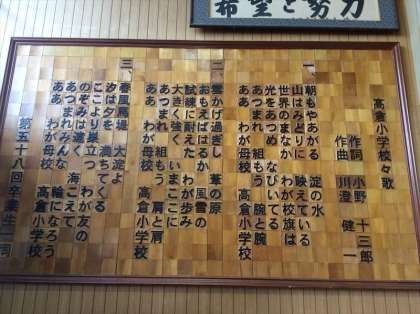 希望と努力
高倉小学校々歌
作詞 小野 十三郎
作曲 川澄 健一
一、朝もやあがる 淀の水
山はみどりに 映えている
世界のまなかに わが校旗は
光をあつめ なびいてる
あつまれ 組もう 腕と腕
ああ わが母校 高倉小学校
二、雲かげ過ぎし 葦の原
おもえばはるか 風雪の
試練に耐えた わが歩み
大きく強く いまここに
あつまれ 組もう 肩と肩
ああ わが母校 高倉小学校
三、春風馬堤 大淀よ
汐は夕を 満ちてくる
ここより巣立つ わが友の
のぞみは遠く 海こえて
あつまれみんな 輪になろう
ああ わが母校 高倉小学校
第五十八回卒業生一同